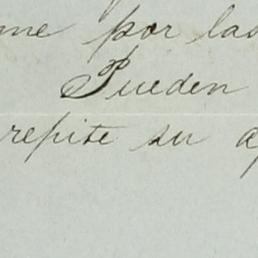 me por las
Pueden
repite su